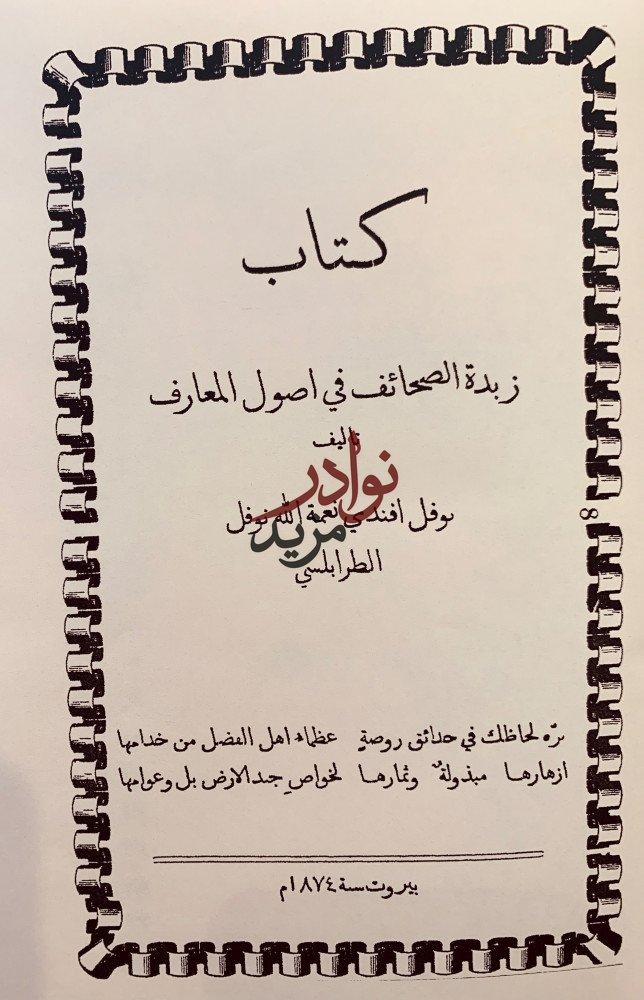 كتاب
زبدة الصحائف في اصول المعارف
تاليف
نوادر
نوفل افندي نعمة الله نوفل
مزيد
الطرابلسي
نزّه لحاظك في حدائق روضةٍ عظماء اهل الفضل من خدامها
ازهارها مبذولةٌ وثمارها لخواصِ جند الارض بل وعوامها
بيروت سنة ١٨٧٤م